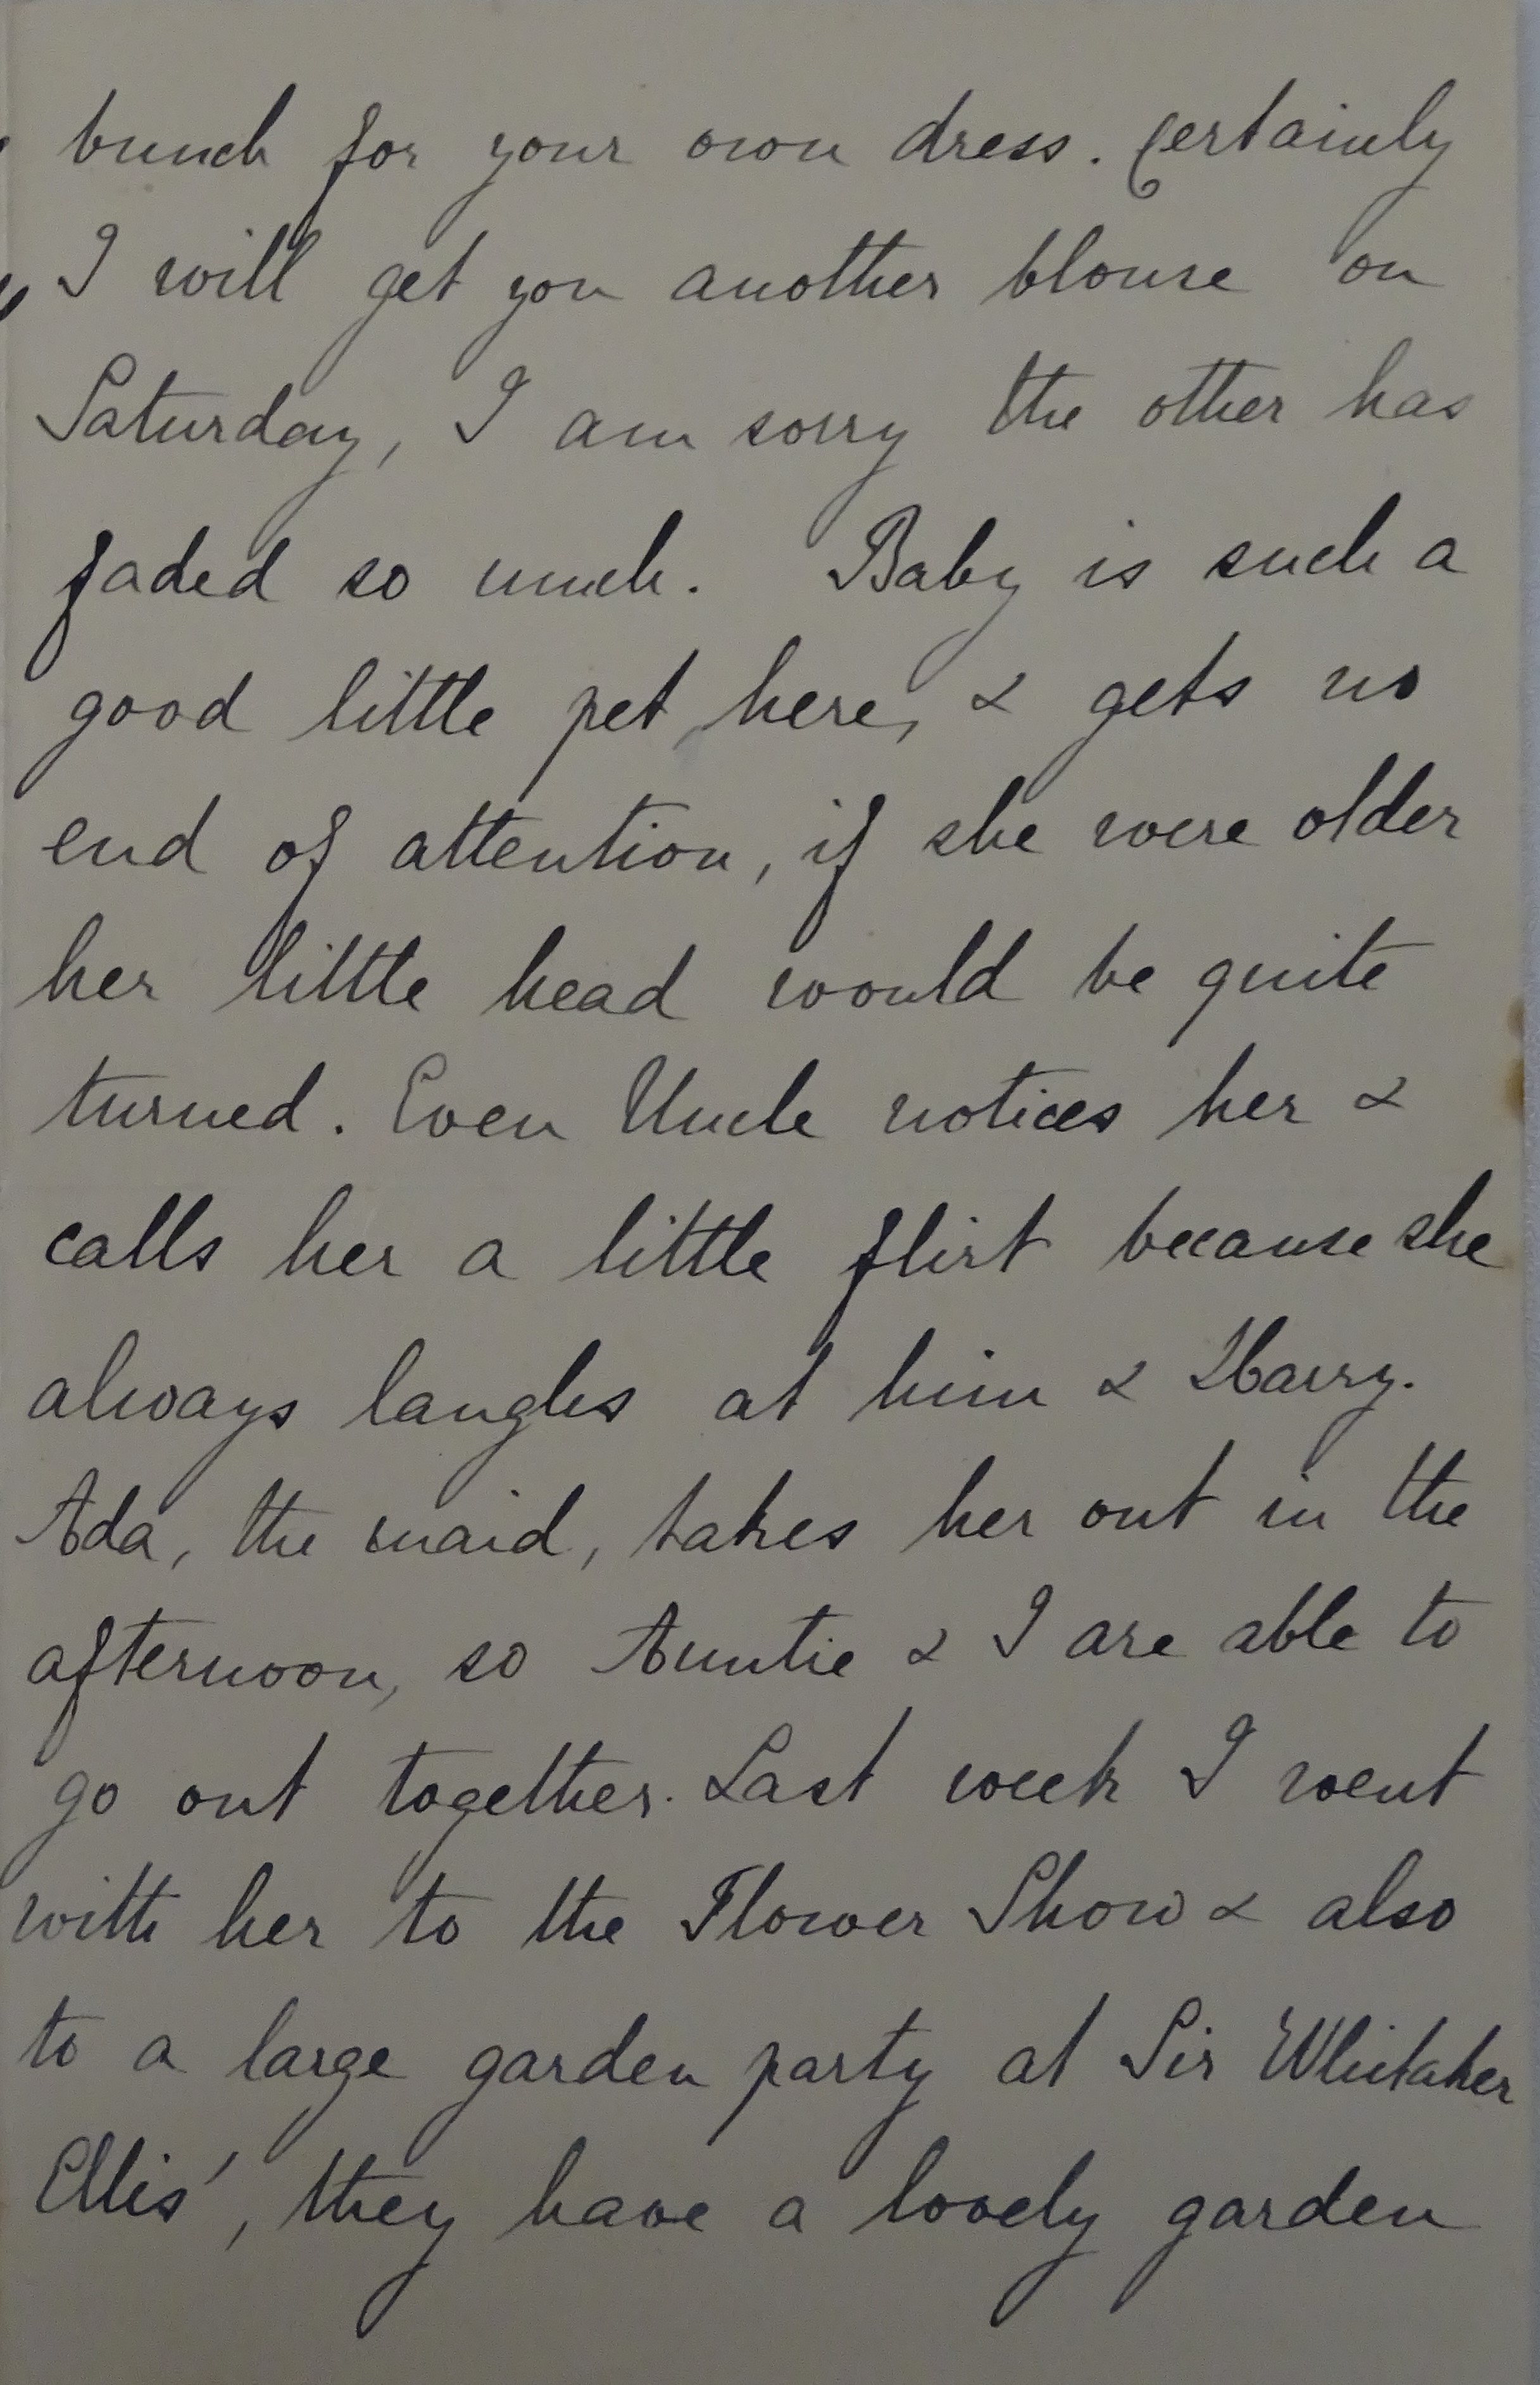 bunch for your own dress. Certainly
I will get you another blouse on
Saturday, I am sorry the other has
faded so much. Baby is such a
good little pet, here, & gets no
end of attention, if she were older
her little head would be quite
turned. Even Uncle notices her &
calls her a little flirt because she
always laughs at him & Harry.
Ada, the maid, takes her out in the
afternoon, so Auntie & I are able to
go out together. Last week I went
with her to the Flower Show & also
to a large garden party at Sir Whitaker
Ellis', they have a lovely garden